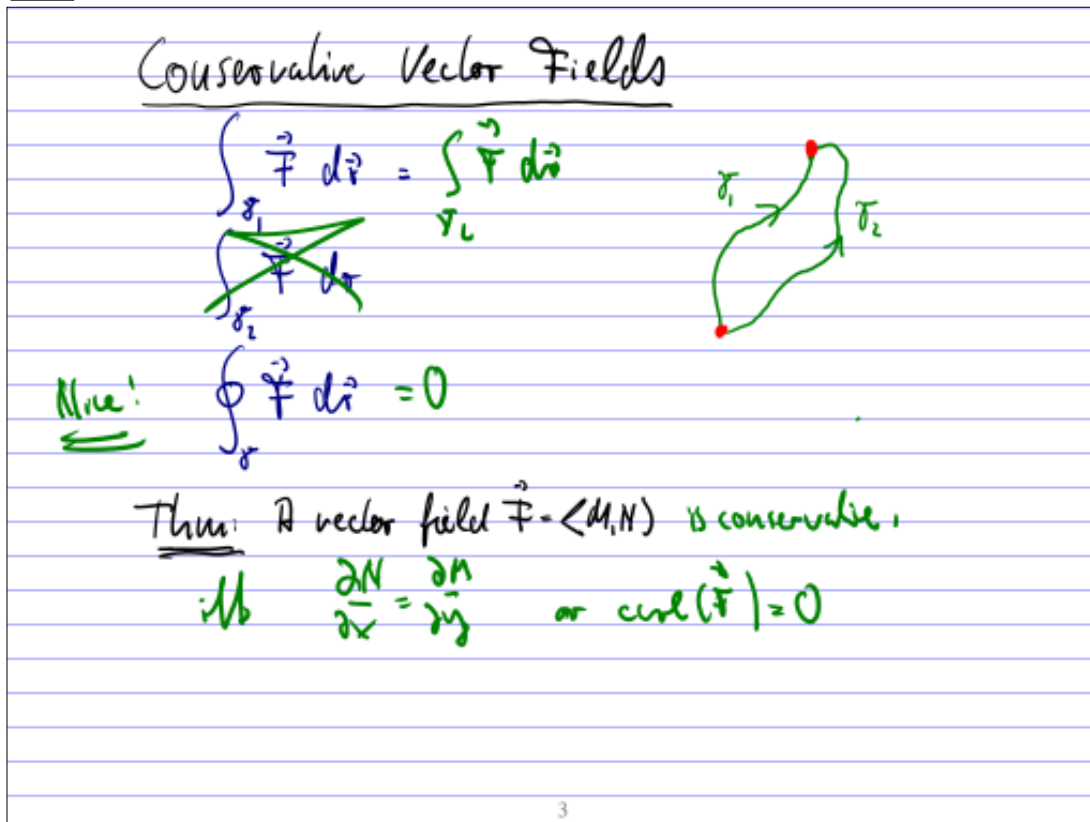 Conservative Vector Fields
∫_γ₁ F⃗ dr⃗ = ∫_γ₂ F⃗ dr⃗
γ₁
γ₂
∫_γ₂ F⃗ dr
Nice! ∮_γ F⃗ dr⃗ = 0
Thm: A vector field F⃗ = <M,N> is conservative,
iff ∂N/∂x = ∂M/∂y or curl(F⃗) = 0
3